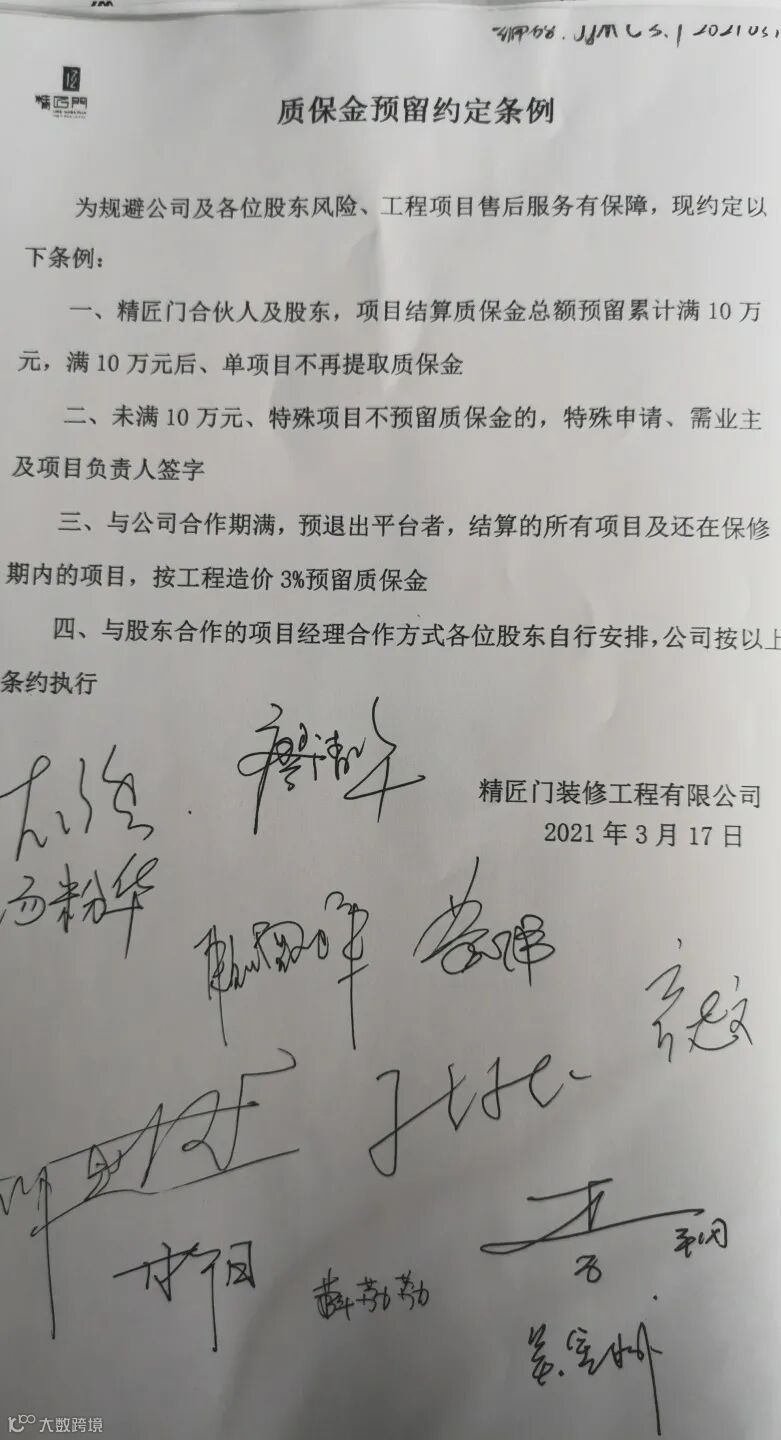 精匠門
质保金预留约定条例
为规避公司及各位股东风险、工程项目售后服务有保障，现约定以
下条例：
一、精匠门合伙人及股东，项目结算质保金总额预留累计满 10 万
元，满 10 万元后、单项目不再提取质保金
二、未满 10 万元、特殊项目不预留质保金的，特殊申请、需业主
及项目负责人签字
三、与公司合作期满，预退出平台者，结算的所有项目及还在保修
期内的项目，按工程造价 3%预留质保金
四、与股东合作的项目经理合作方式各位股东自行安排，公司按以上
条约执行
廖清华
精匠门装修工程有限公司
2021 年 3 月 17 日
汤粉华
薛勃勃
大数跨境